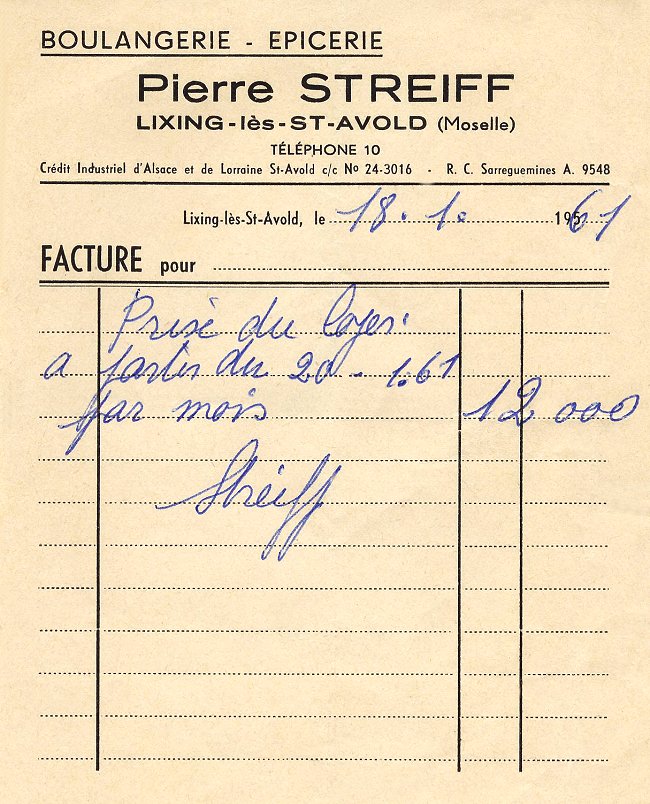 BOULANGERIE - EPICERIE
Pierre STREIFF
LIXING-lès-ST-AVOLD (Moselle)
TÉLÉPHONE 10
Crédit Industriel d'Alsace et de Lorraine St-Avold c/c No 24-3016 - R. C. Sarreguemines A. 9548
Lixing-lès-St-Avold, le 18.1. 1961
FACTURE pour
Prise du loyer
a partir du 20-1.61
par mois 12 000
Streiff